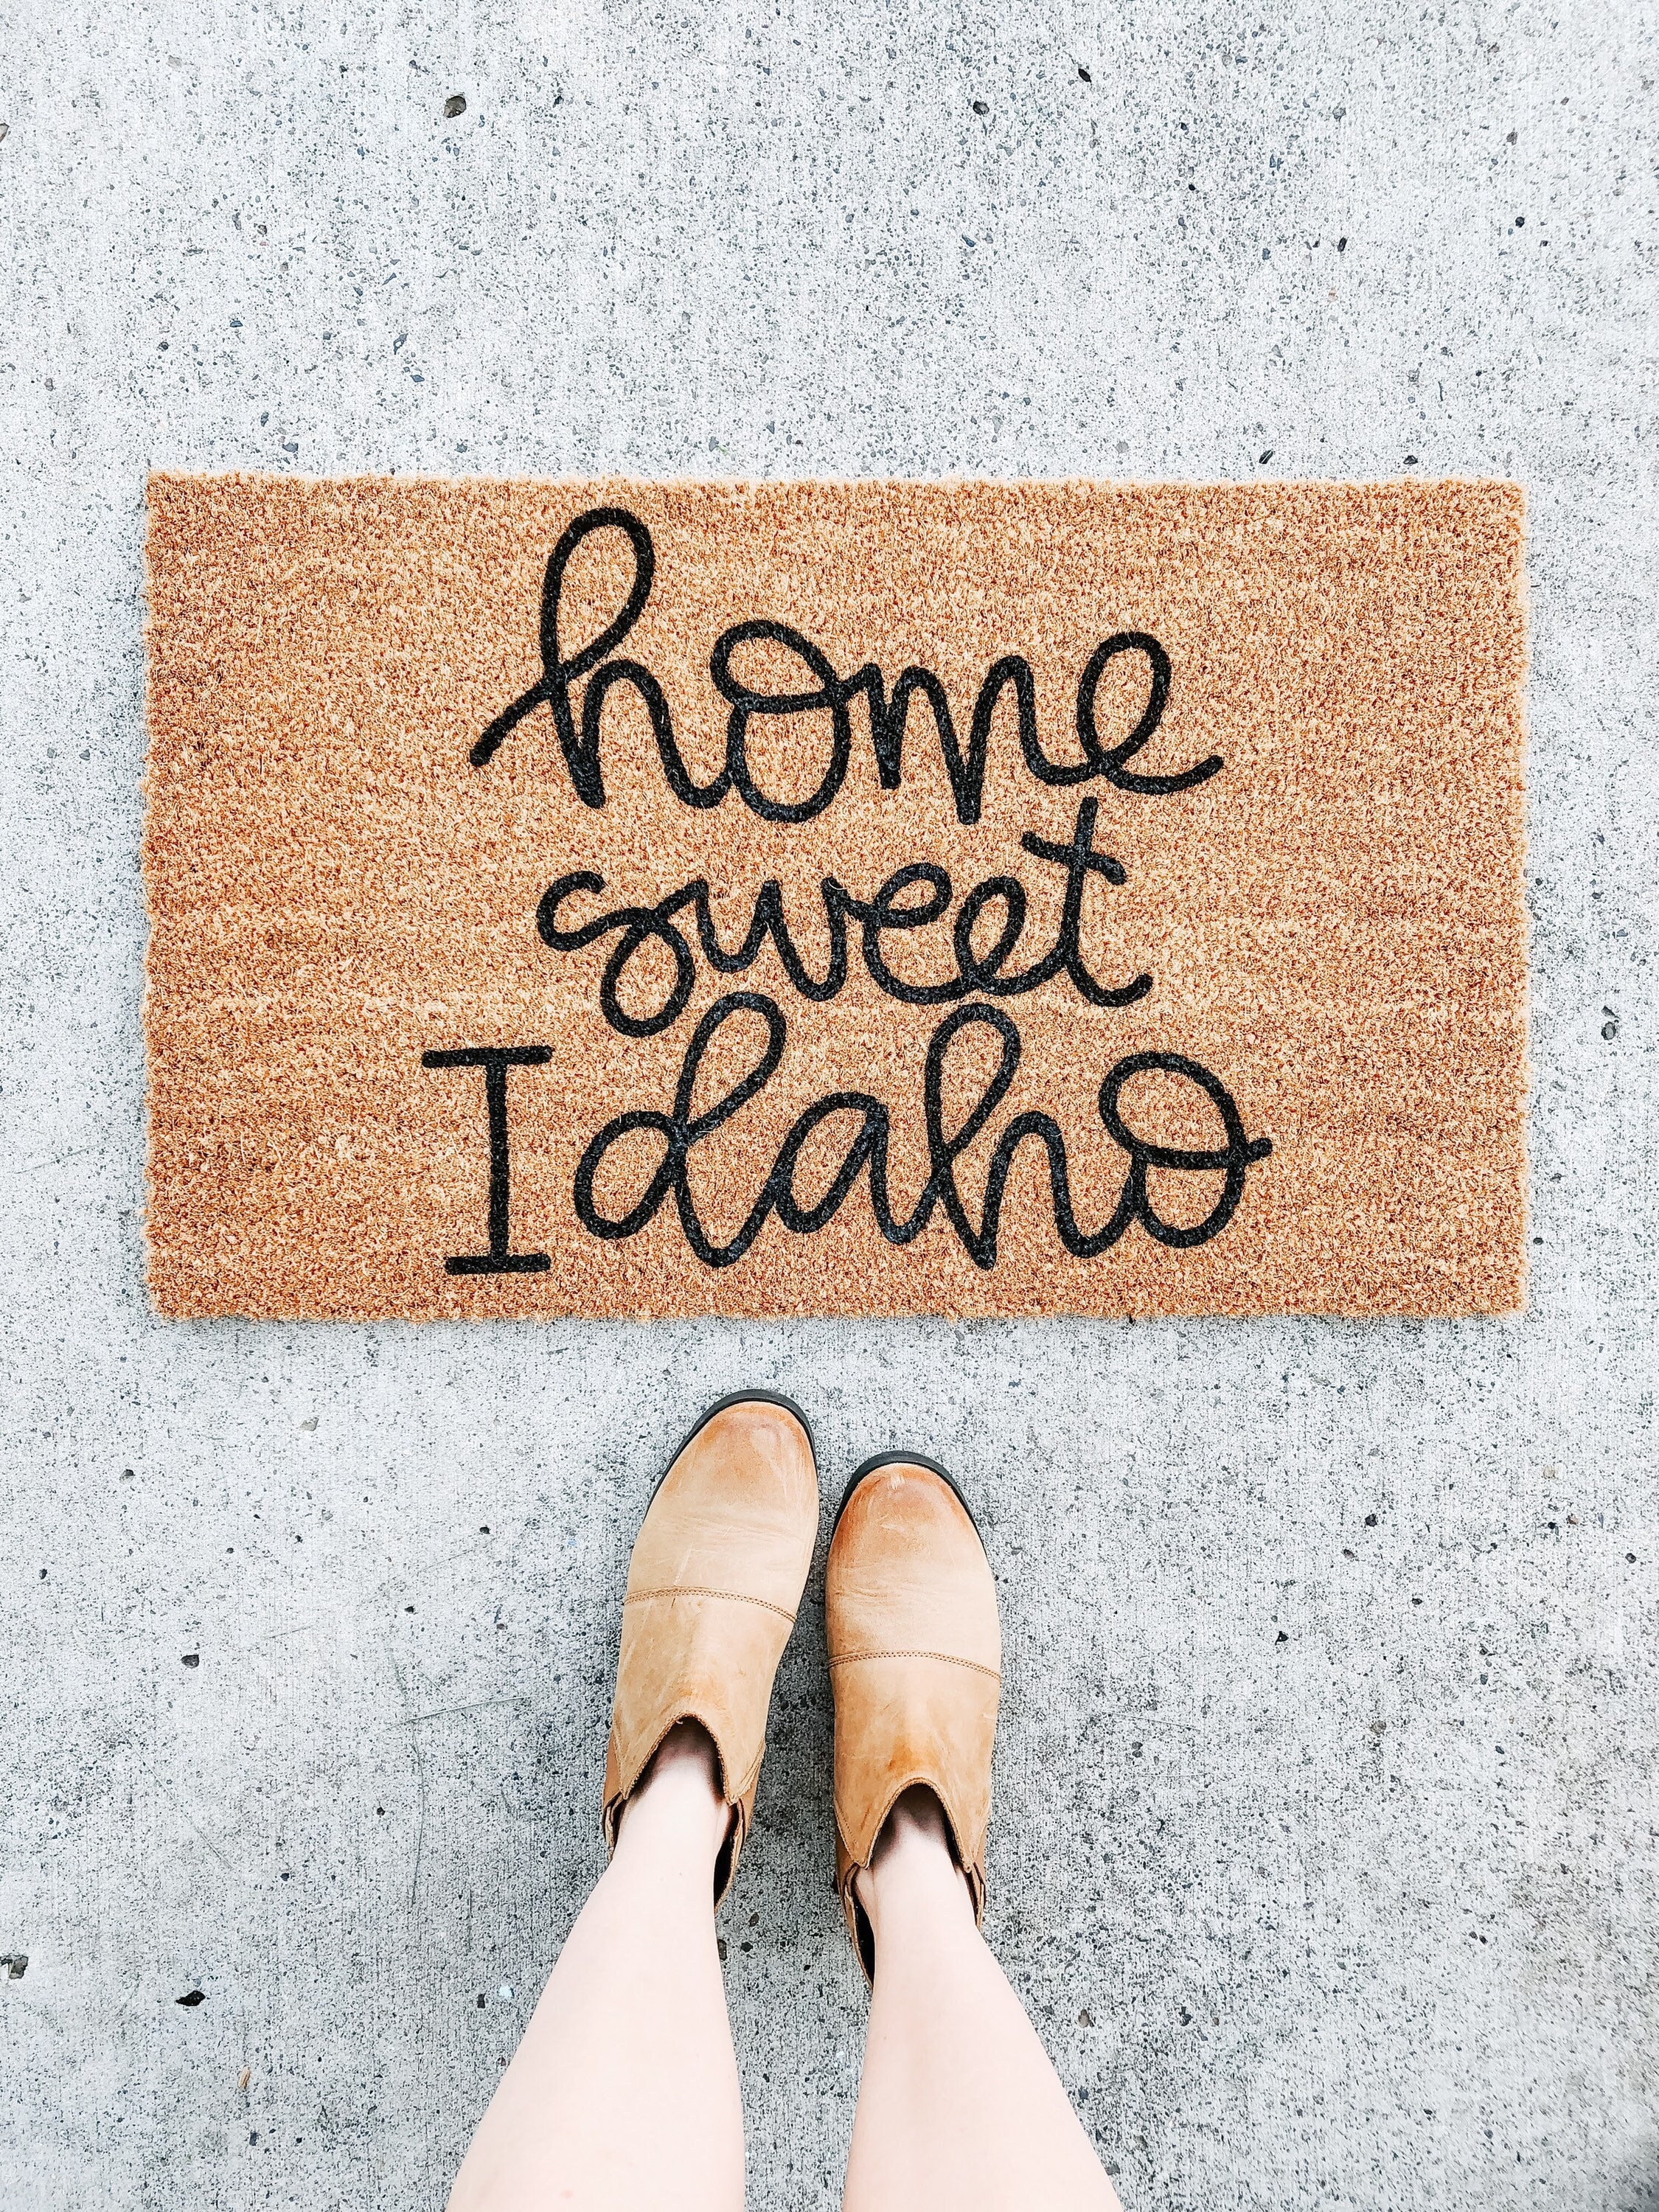 home
sweet
Idaho